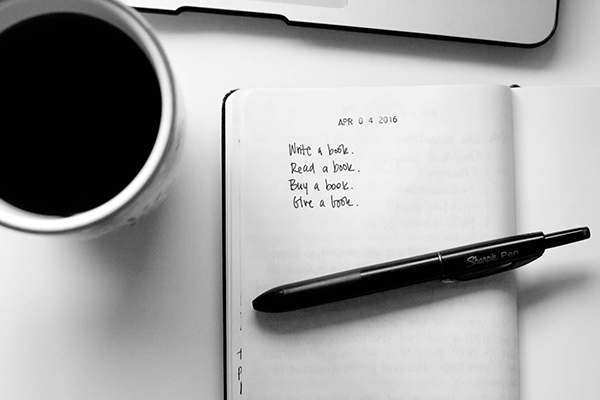 APR 0 4 2016
Write a book.
Read a book.
Buy a book.
Give a book.
Sharpie Pen